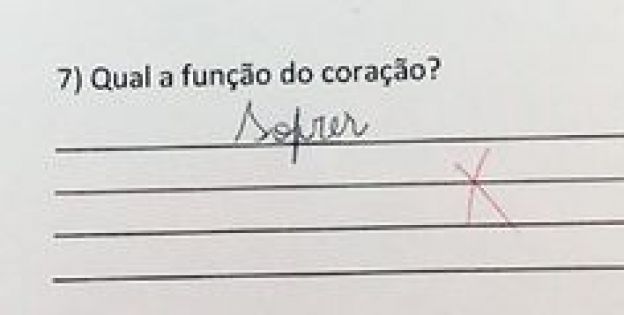 7) Qual a função do coração?
Sofrer